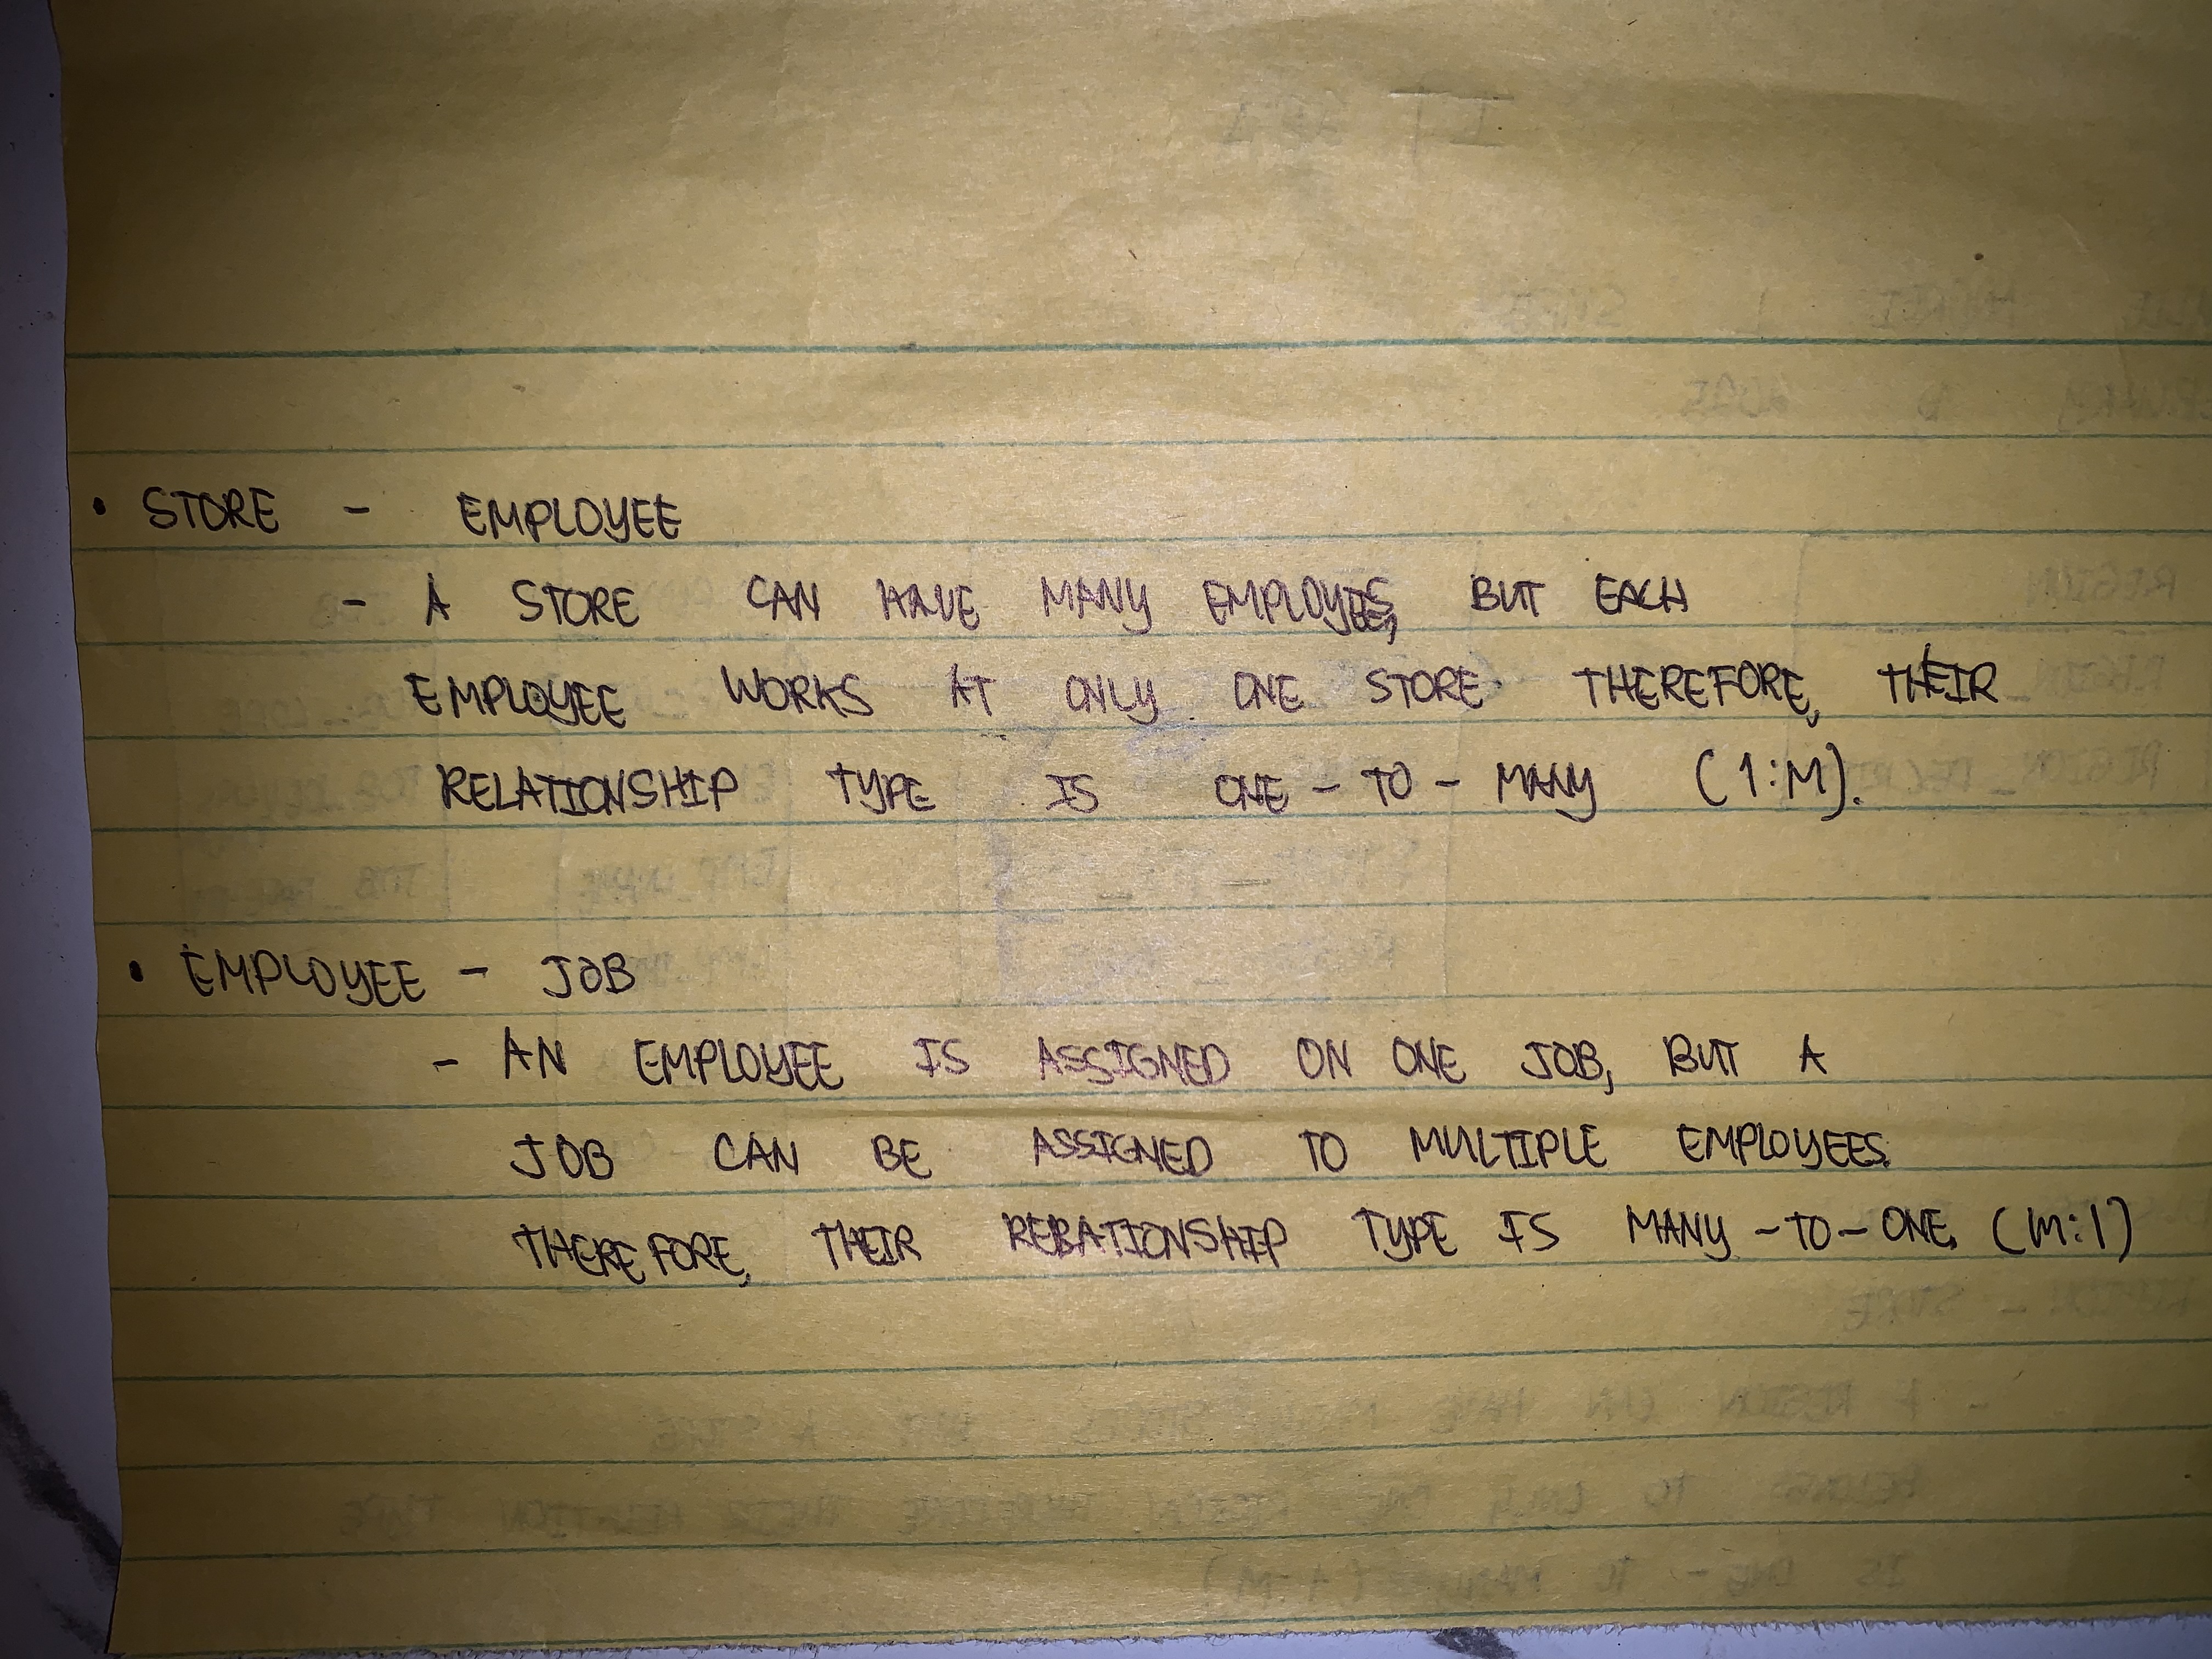 • STORE - EMPLOYEE
- A STORE CAN HAVE MANY EMPLOYEES, BUT EACH
EMPLOYEE WORKS AT ONLY ONE STORE. THEREFORE, THEIR
RELATIONSHIP TYPE IS ONE-TO-MANY (1:M).
• EMPLOYEE - JOB
- AN EMPLOYEE IS ASSIGNED ON ONE JOB, BUT A
JOB CAN BE ASSIGNED TO MULTIPLE EMPLOYEES.
THEREFORE, THEIR RELATIONSHIP TYPE IS MANY-TO-ONE. (M:1)